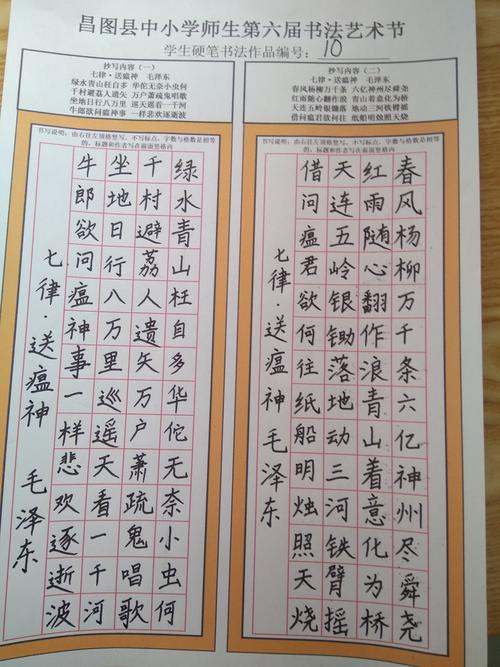 昌图县中小学师生第六届书法艺术节
学生硬笔书法作品编号：10
抄写内容（一）
七律·送瘟神　毛泽东
绿水青山枉自多　华佗无奈小虫何
千村薜荔人遗矢　万户萧疏鬼唱歌
坐地日行八万里　巡天遥看一千河
牛郎欲问瘟神事　一样悲欢逐逝波
书写说明：由右往左顶格竖写，不写标点，字数与格数是相等的，标题和作者写在前面竖格内
绿水青山枉自多华佗无奈小虫何
千村避荔人遗矢万户萧疏鬼唱歌
坐地日行八万里巡遥天看一千河
牛郎欲问瘟神事一样悲欢逐逝波
七律·送瘟神　毛泽东
抄写内容（二）
七律·送瘟神　毛泽东
春风杨柳万千条　六亿神州尽舜尧
红雨随心翻作浪　青山着意化为桥
天连五岭银锄落　地动三河铁臂摇
借问瘟君欲何往　纸船明烛照天烧
书写说明：由右往左顶格竖写，不写标点，字数与格数是相等的，标题和作者写在前面竖格内
春风杨柳万千条六亿神州尽舜尧
红雨随心翻作浪青山着意化为桥
天连五岭银锄落地动三河铁臂摇
借问瘟君欲何往纸船明烛照天烧
七律·送瘟神　毛泽东